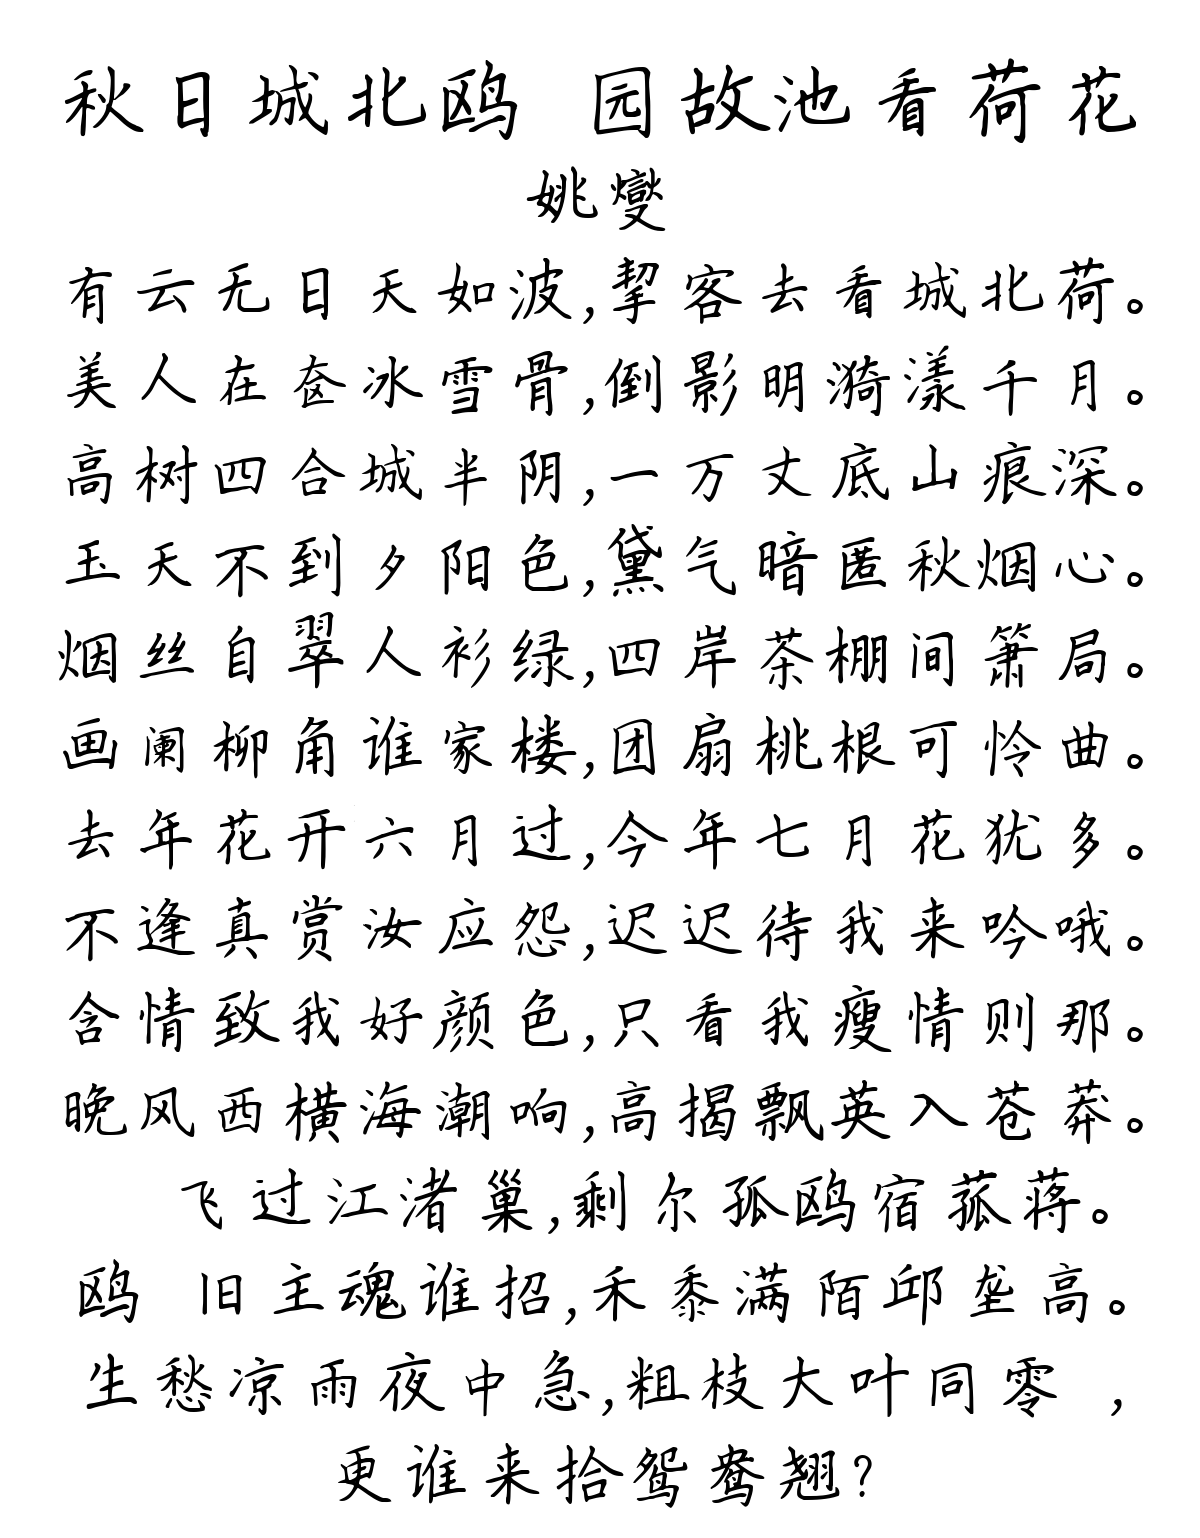 秋日城北鸥 园故池看荷花
姚燮
有云无日天如波,挈客去看城北荷。
美人在奁冰雪骨,倒影明漪漾千月。
高树四合城半阴,一万丈底山痕深。
玉天不到夕阳色,黛气暗匿秋烟心。
烟丝自翠人衫绿,四岸茶棚间箫局。
画阑柳角谁家楼,团扇桃根可怜曲。
去年花开六月过,今年七月花犹多。
不逢真赏汝应怨,迟迟待我来吟哦。
含情致我好颜色,只看我瘦情则那。
晚风西横海潮响,高揭飘英入苍莽。
飞过江渚巢,剩尔孤鸥宿菰蒋。
鸥 旧主魂谁招,禾黍满陌邱垄高。
生愁凉雨夜中急,粗枝大叶同零 ,
更谁来拾鸳鸯翘?